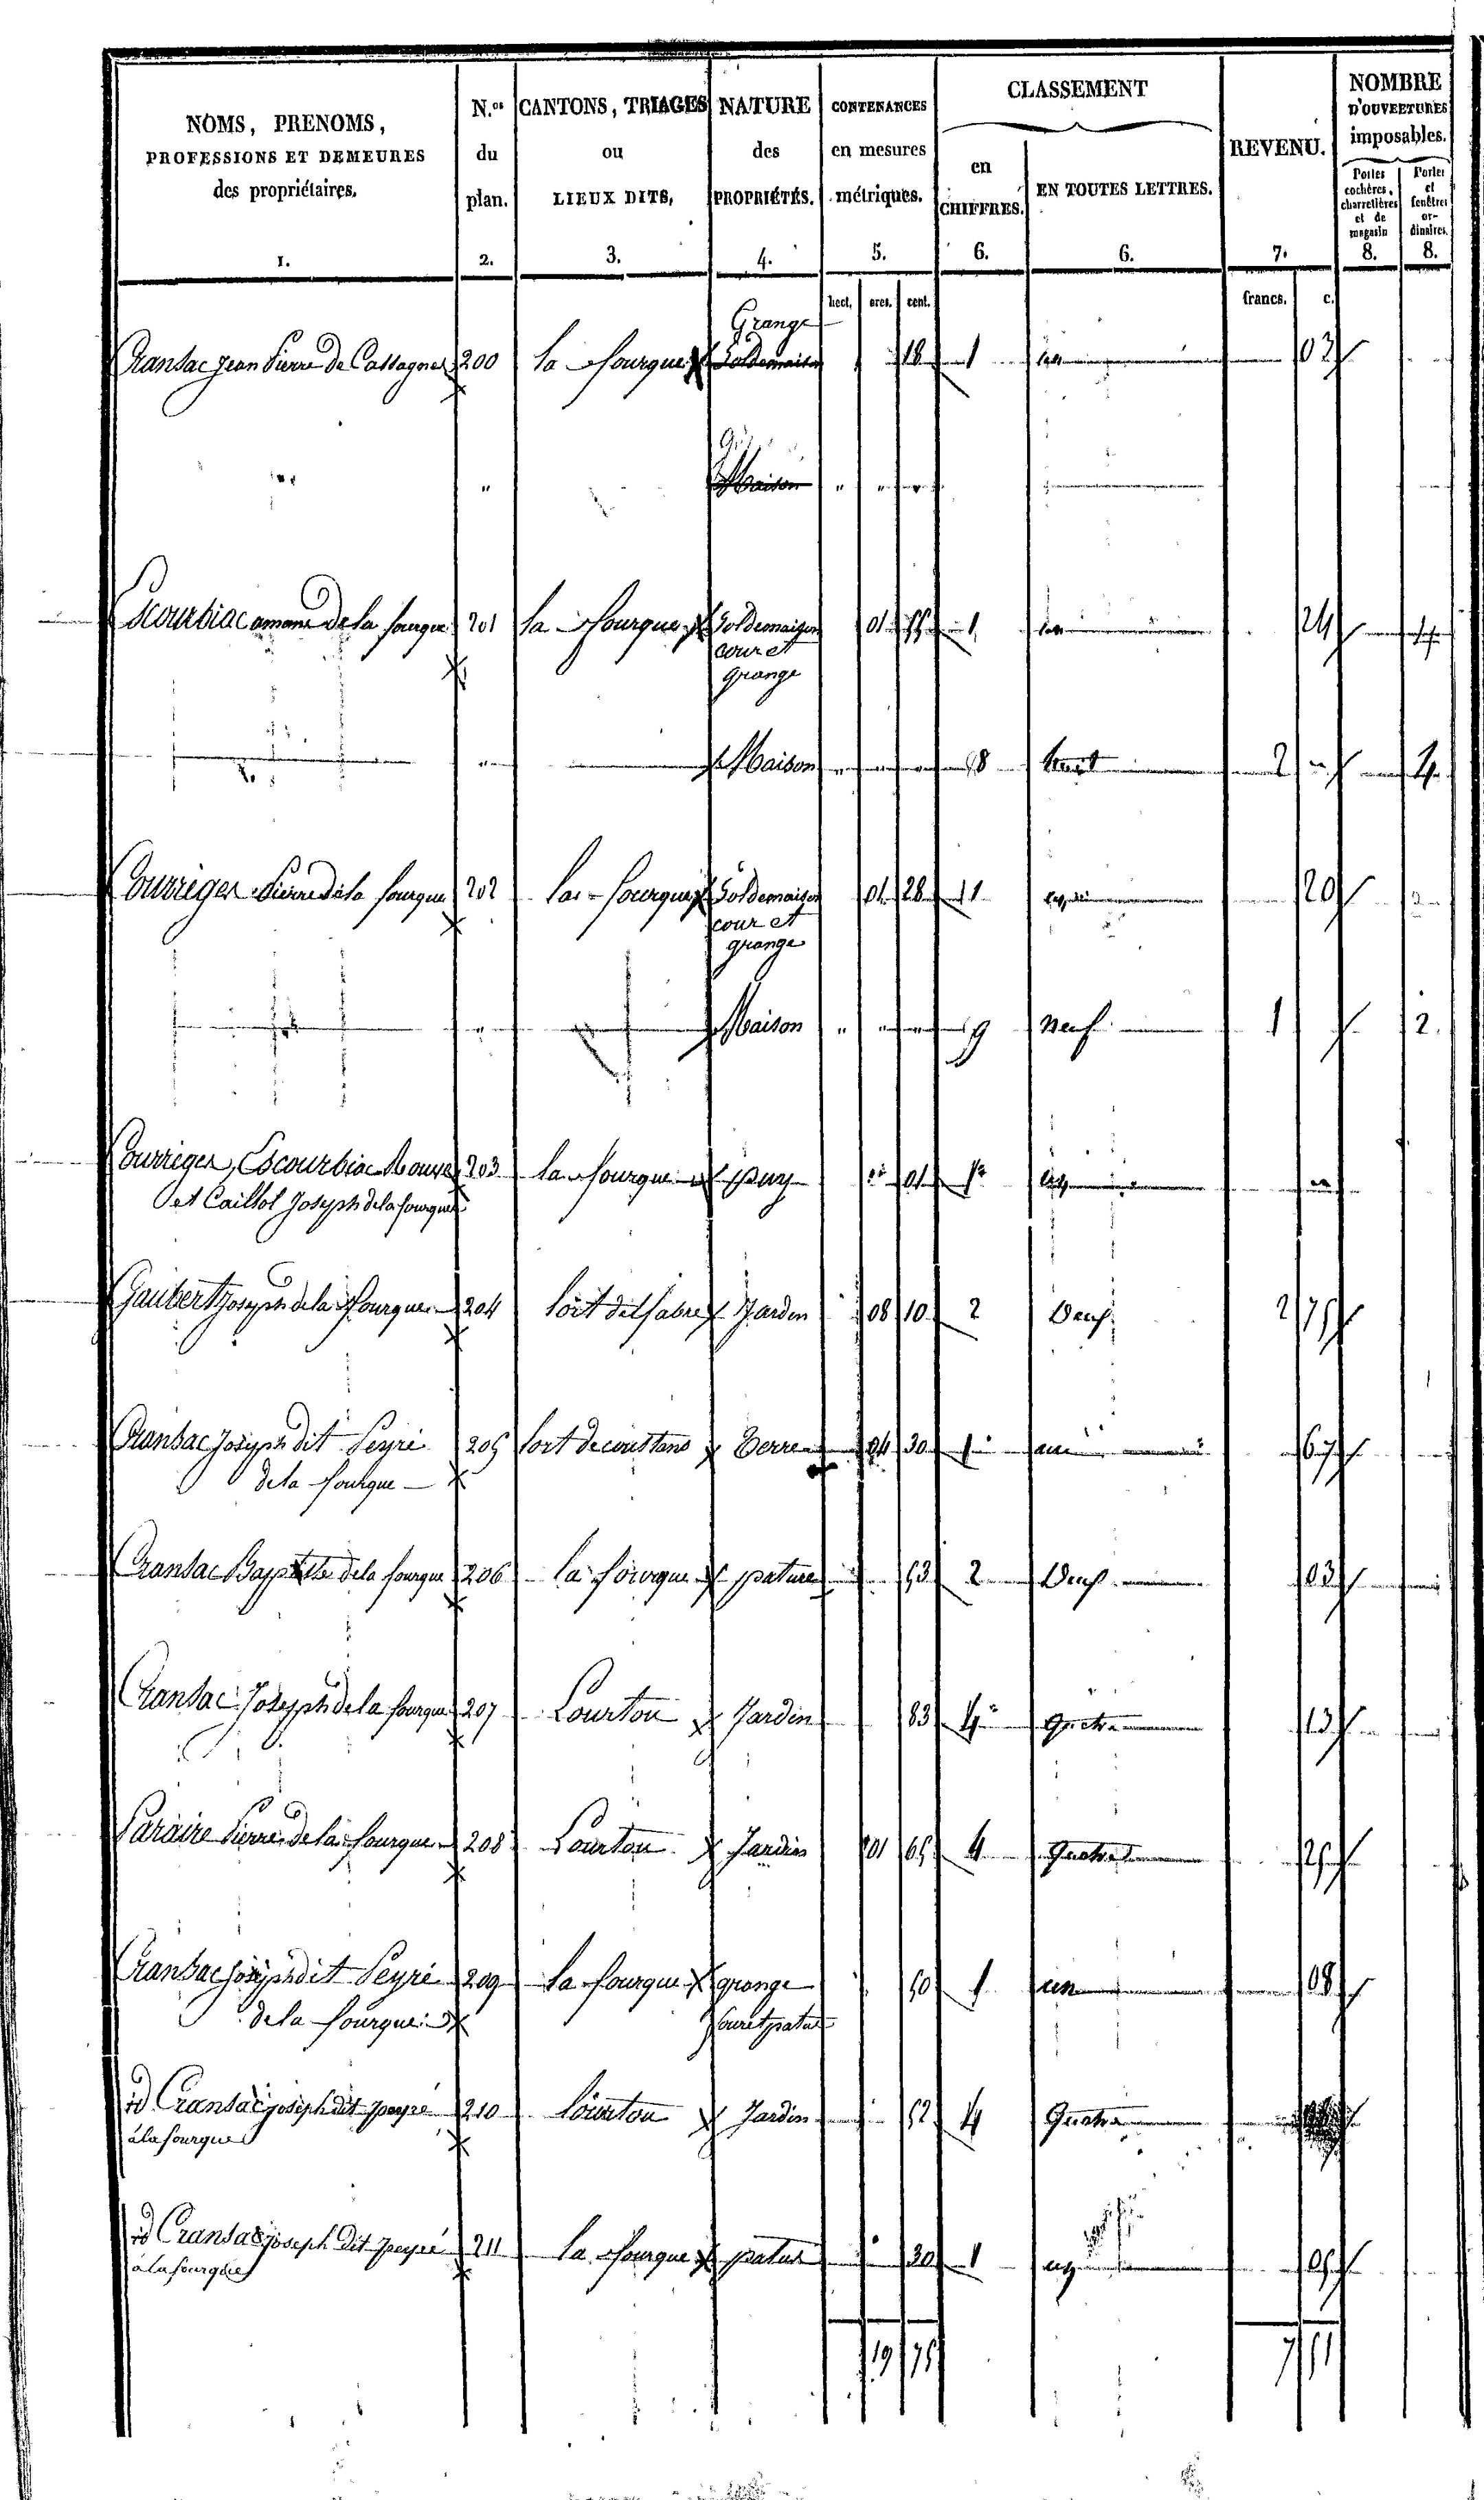 NOMS, PRENOMS, PROFESSIONS ET DEMEURES des propriétaires. 1.
N.os du plan. 2.
CANTONS, TRIAGES ou LIEUX DITS. 3.
NATURE des PROPRIÉTÉS. 4.
CONTENANCES en mesures métriques. 5.
CLASSEMENT
en CHIFFRES. 6.
EN TOUTES LETTRES. 6.
REVENU. 7.
NOMBRE D'OUVERTURES imposables.
Portes cochères, charretières et de magasin 8.
Portes et fenêtres ordinaires. 8.
hect. ares. cent. francs. c.
Grange
Cransac Jean Pierre de Cassagnes 200 la fourque Sol de maison 18 1 03
" " Maison " " "
Escourbiac de la fourque 201 la fourque Sol de maison 01 1 24
cour et
grange
" Maison 8 huit 2 4
Courreges Pierre de la fourque 202 la fourque Sol de maison 01 28 1 20
cour et
grange
" Maison " " " 9 Neuf 1 2
Courreges, Escourbiac 203 la fourque 01
et Caillol Joseph de la fourque
Gaubert Joseph de la fourque 204 Jardin 08 10 2 Deux 2 75
Cransac Joseph dit Peyré 205 Terre 04 30 67
de la fourque
Cransac Baptiste de la fourque 206 la fourque pature 53 2 Deux 03
Cransac Joseph de la fourque 207 Lourtou Jardin 83 4 Quatre 13
Paraire Pierre de la fourque 208 Lourtou Jardin 01 65 4 Quatre 25
Cransac Joseph dit Peyré 209 la fourque grange 50 1 un 08
de la fourque
id Cransac joseph dit peyré 210 Lourtou Jardin 52 4 Quatre
à la fourque
id Cransac joseph dit peyré 211 la fourque patus 30 1 05
à la fourque
19 75 7 51